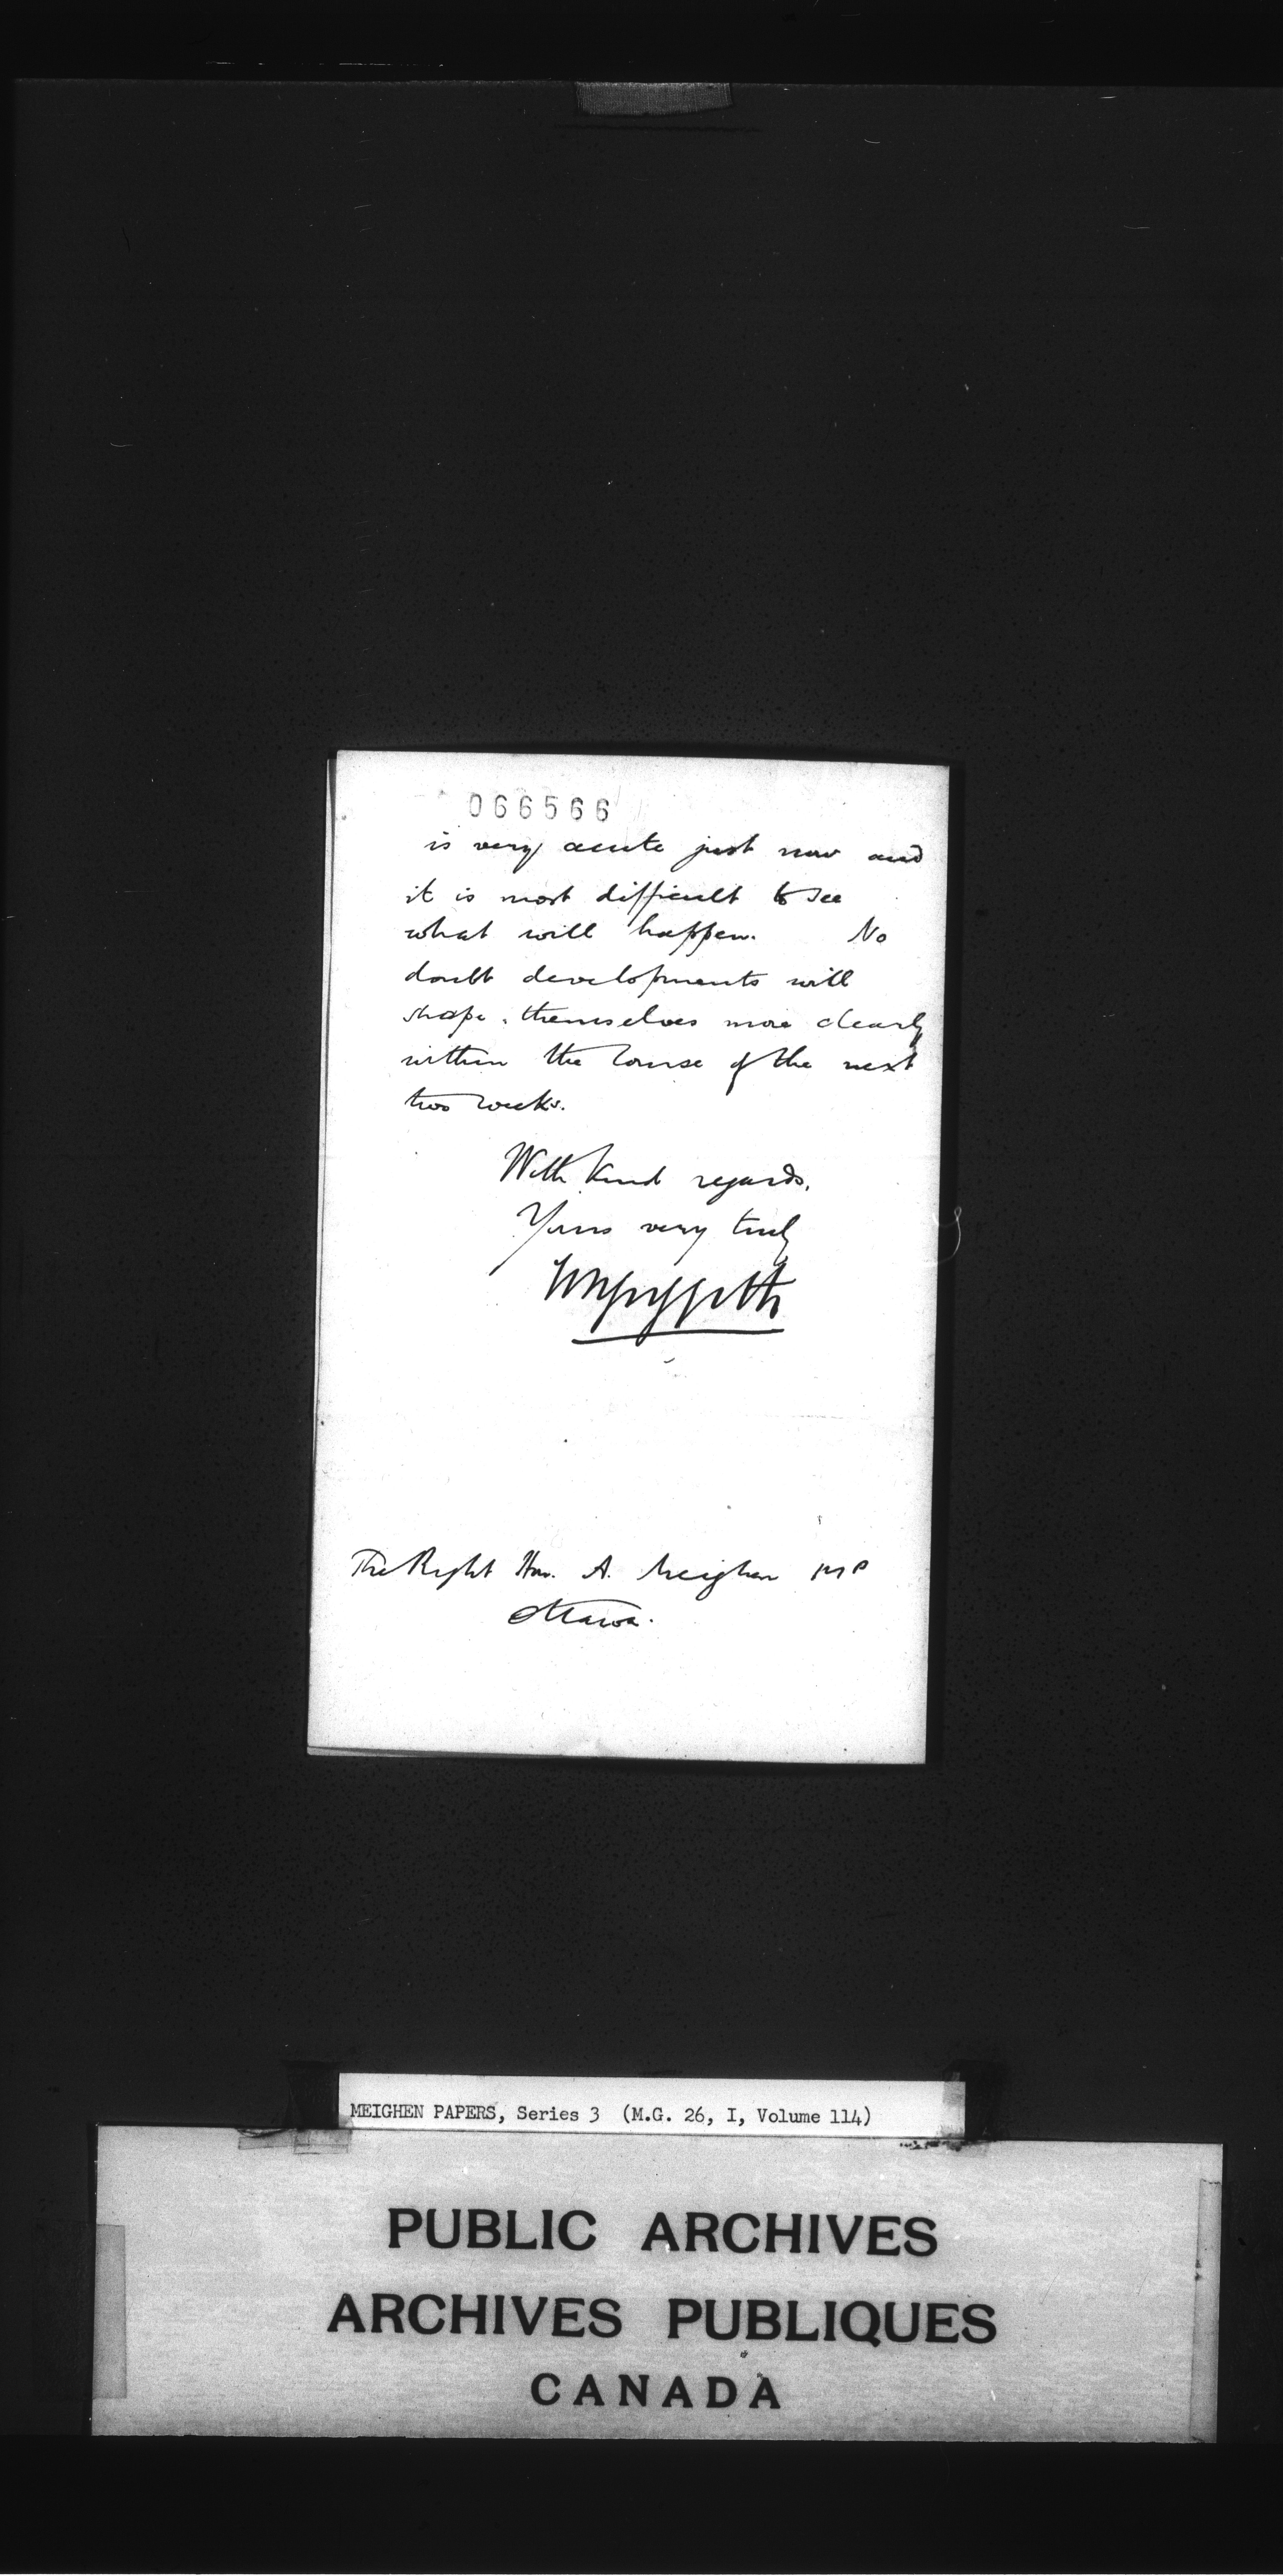 066566
is very acute just now and
it is most difficult to see
what will happen. No
doubt developments will
shape themselves more clearly
within the course of the next
two weeks.
With kind regards,
Yours very truly
W Griffith
The Right Hon. A. Meighen MP
Ottawa.
MEIGHEN PAPERS, Series 3 (M.G. 26, I, Volume 114)
PUBLIC ARCHIVES
ARCHIVES PUBLIQUES
CANADA